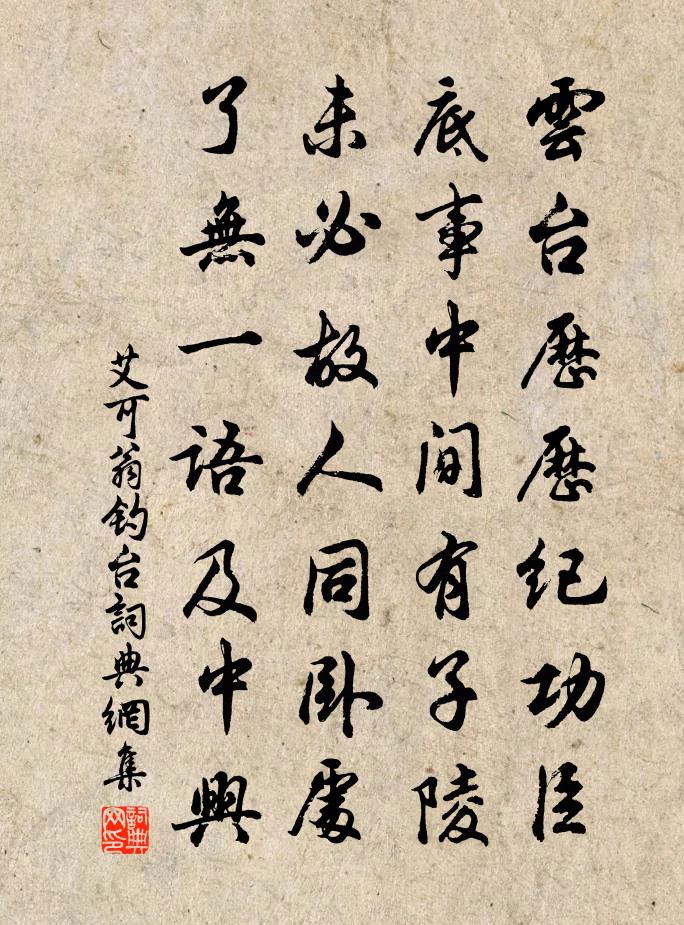 雲台歷歷紀功臣
底事中間有子陵
未必故人同卧處
了無一語及中興
艾可翁釣台詞典網集
詞典網印